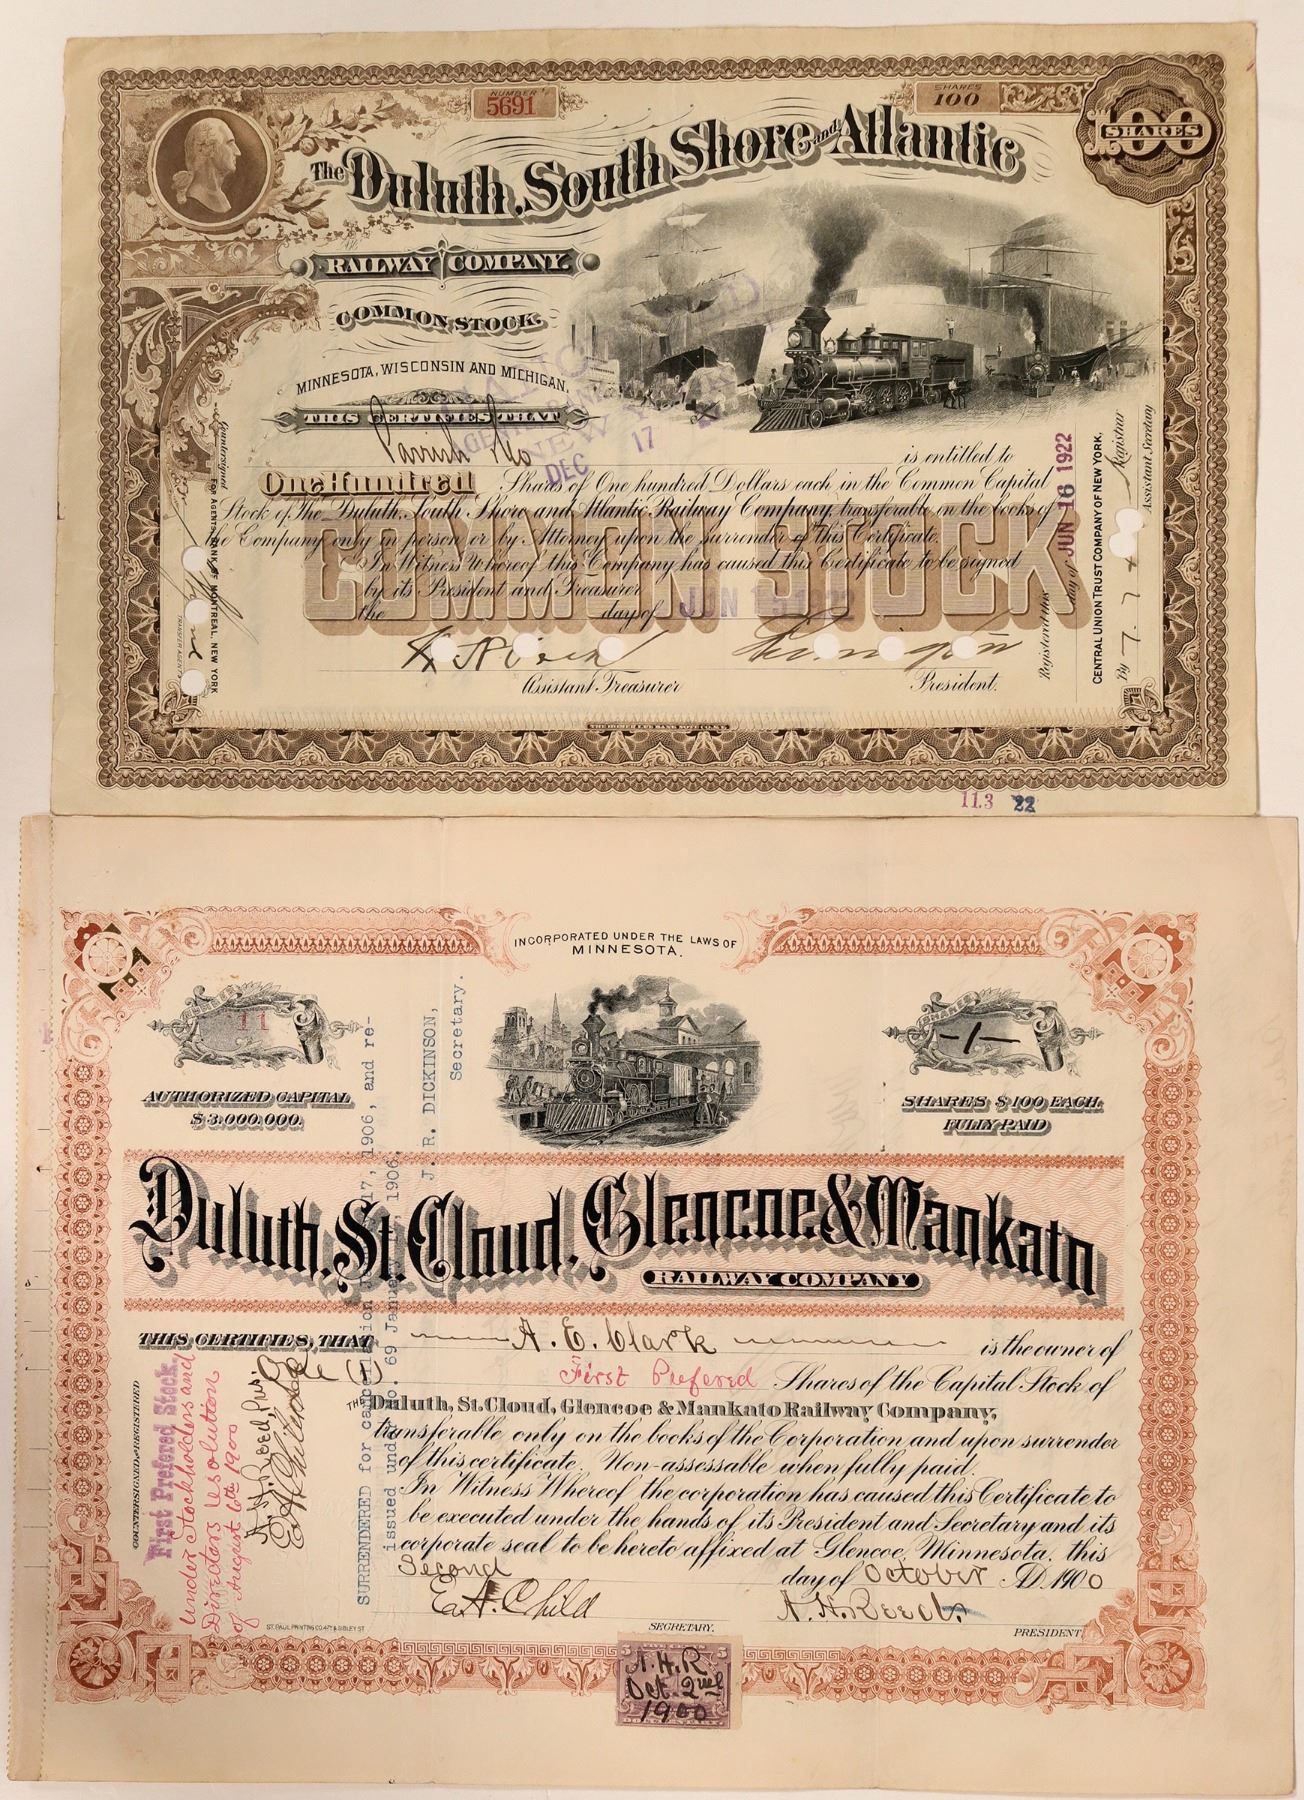 NUMBER
5691
SHARES
100
100
SHARES
The Duluth, South Shore and Atlantic
RAILWAY COMPANY.
COMMON STOCK.
MINNESOTA, WISCONSIN AND MICHIGAN.
THIS CERTIFIES THAT
is entitled to
One Hundred Shares of One hundred Dollars each in the Common Capital
Stock of The Duluth, South Shore and Atlantic Railway Company, transferable on the books of
the Company only in person or by Attorney upon the surrender of this Certificate.
In Witness Whereof this Company has caused this Certificate to be signed
by its President and Treasurer
the day of JUN 15 1922
COMMON STOCK
Assistant Treasurer
President.
DEC 17
NEW YORK
Countersigned
FOR AGENTS, BANK OF MONTREAL, NEW YORK
TRANSFER AGENTS
Registered this day of JUN 16 1922
CENTRAL UNION TRUST COMPANY OF NEW YORK,
Registrar
By
Assistant Secretary
11.3 22
INCORPORATED UNDER THE LAWS OF
MINNESOTA.
11
SHARES
-1-
AUTHORIZED CAPITAL
$3,000,000.
SHARES $100 EACH.
FULLY PAID
Duluth, St. Cloud, Glencoe & Mankato
RAILWAY COMPANY
THIS CERTIFIES, THAT A. E. Clark is the owner of
One (1) First Prefered Shares of the Capital Stock of
THE Duluth, St. Cloud, Glencoe & Mankato Railway Company,
transferable only on the books of the Corporation and upon surrender
of this certificate. Non-assessable when fully paid.
In Witness Whereof the corporation has caused this Certificate to
be executed under the hands of its President and Secretary and its
corporate seal to be hereto affixed at Glencoe, Minnesota, this
Second day of October A.D. 1900
E. A. Child
SECRETARY.
A. H. Reed.
PRESIDENT.
ST. PAUL PRINTING CO. 4TH & SIBLEY ST
COUNTERSIGNED & REGISTERED
First Prefered Stock,
under Stockholders and
Directors resolution
of August 6th 1900
A. H. Reed, Pres.
E A Child Sec
SURRENDERED for cancellation 17, 1906, and re-
issued under No. 69 January 1906
J. R. DICKINSON,
Secretary.
FIVE CENTS
A. H. R.
Oct. 2nd
1900